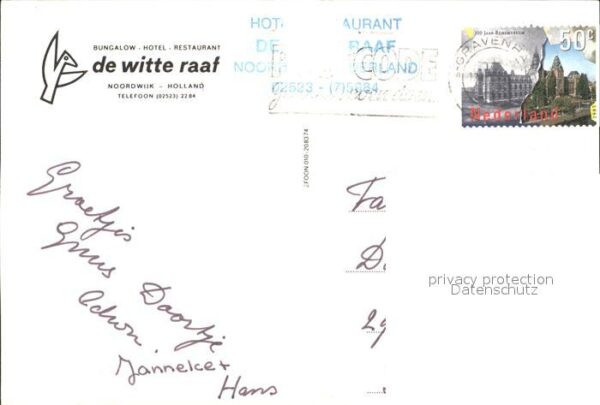 BUNGALOW - HOTEL - RESTAURANT
de witte raaf
NOORDWIJK - HOLLAND
TELEFOON (02523) 22 84
HOT AURANT
DE RAAF
NOO ERLAND
02523 - (7)5984
CODE
'S-GRAVENH
100 JAAR RIJKSMUSEUM
50c
Nederland
1985
EFOON 010-268374
Groetjes
Guus Doortje
Adwon.
Janneke+
Hans
Fa
D
29
privacy protection
Datenschutz